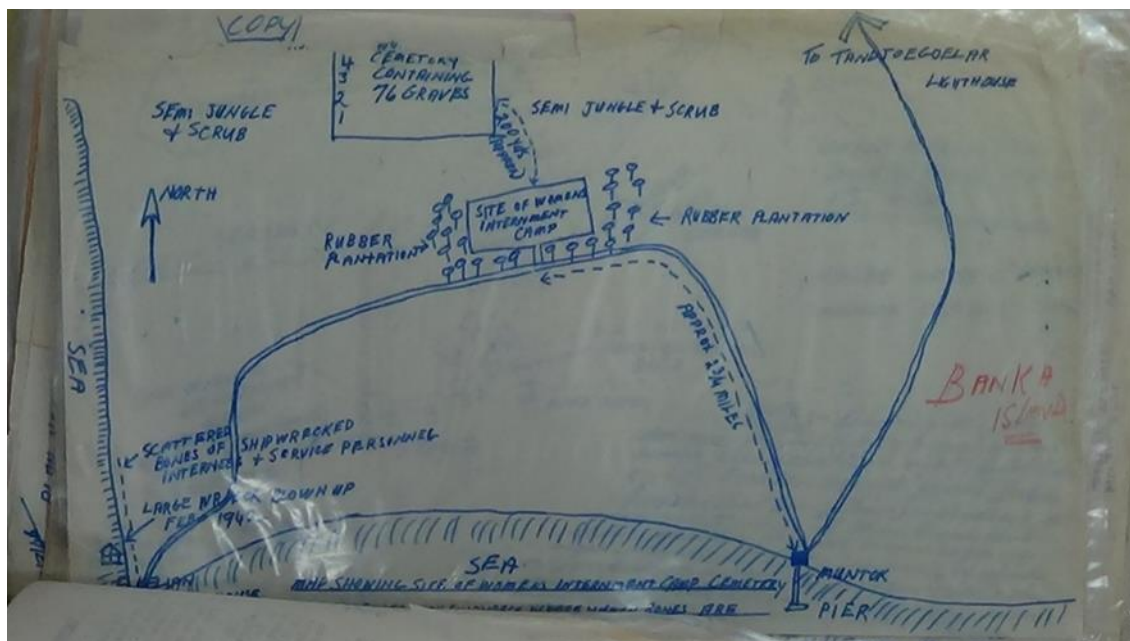 COPY
4
3
2
1
CEMETORY
CONTAINING
76 GRAVES
SEMI JUNGLE
& SCRUB
200 yds
SEMI JUNGLE & SCRUB
TO TANDJOEGOELAR
LIGHTHOUSE
NORTH
SITE OF WOMENS
INTERNMENT
CAMP
RUBBER
PLANTATION
RUBBER PLANTATION
APPROX 2 3/4 MILES
SEA
BANKA
ISLAND
SCATTERED
BONES OF SHIPWRECKED
INTERNEES & SERVICE PERSONNEL
LARGE WRECK BLOWN UP
FEB 194
SEA
MUNTOK
PIER
MAP SHOWING SITE OF WOMENS INTERNMENT CAMP CEMETERY
BONES ARE